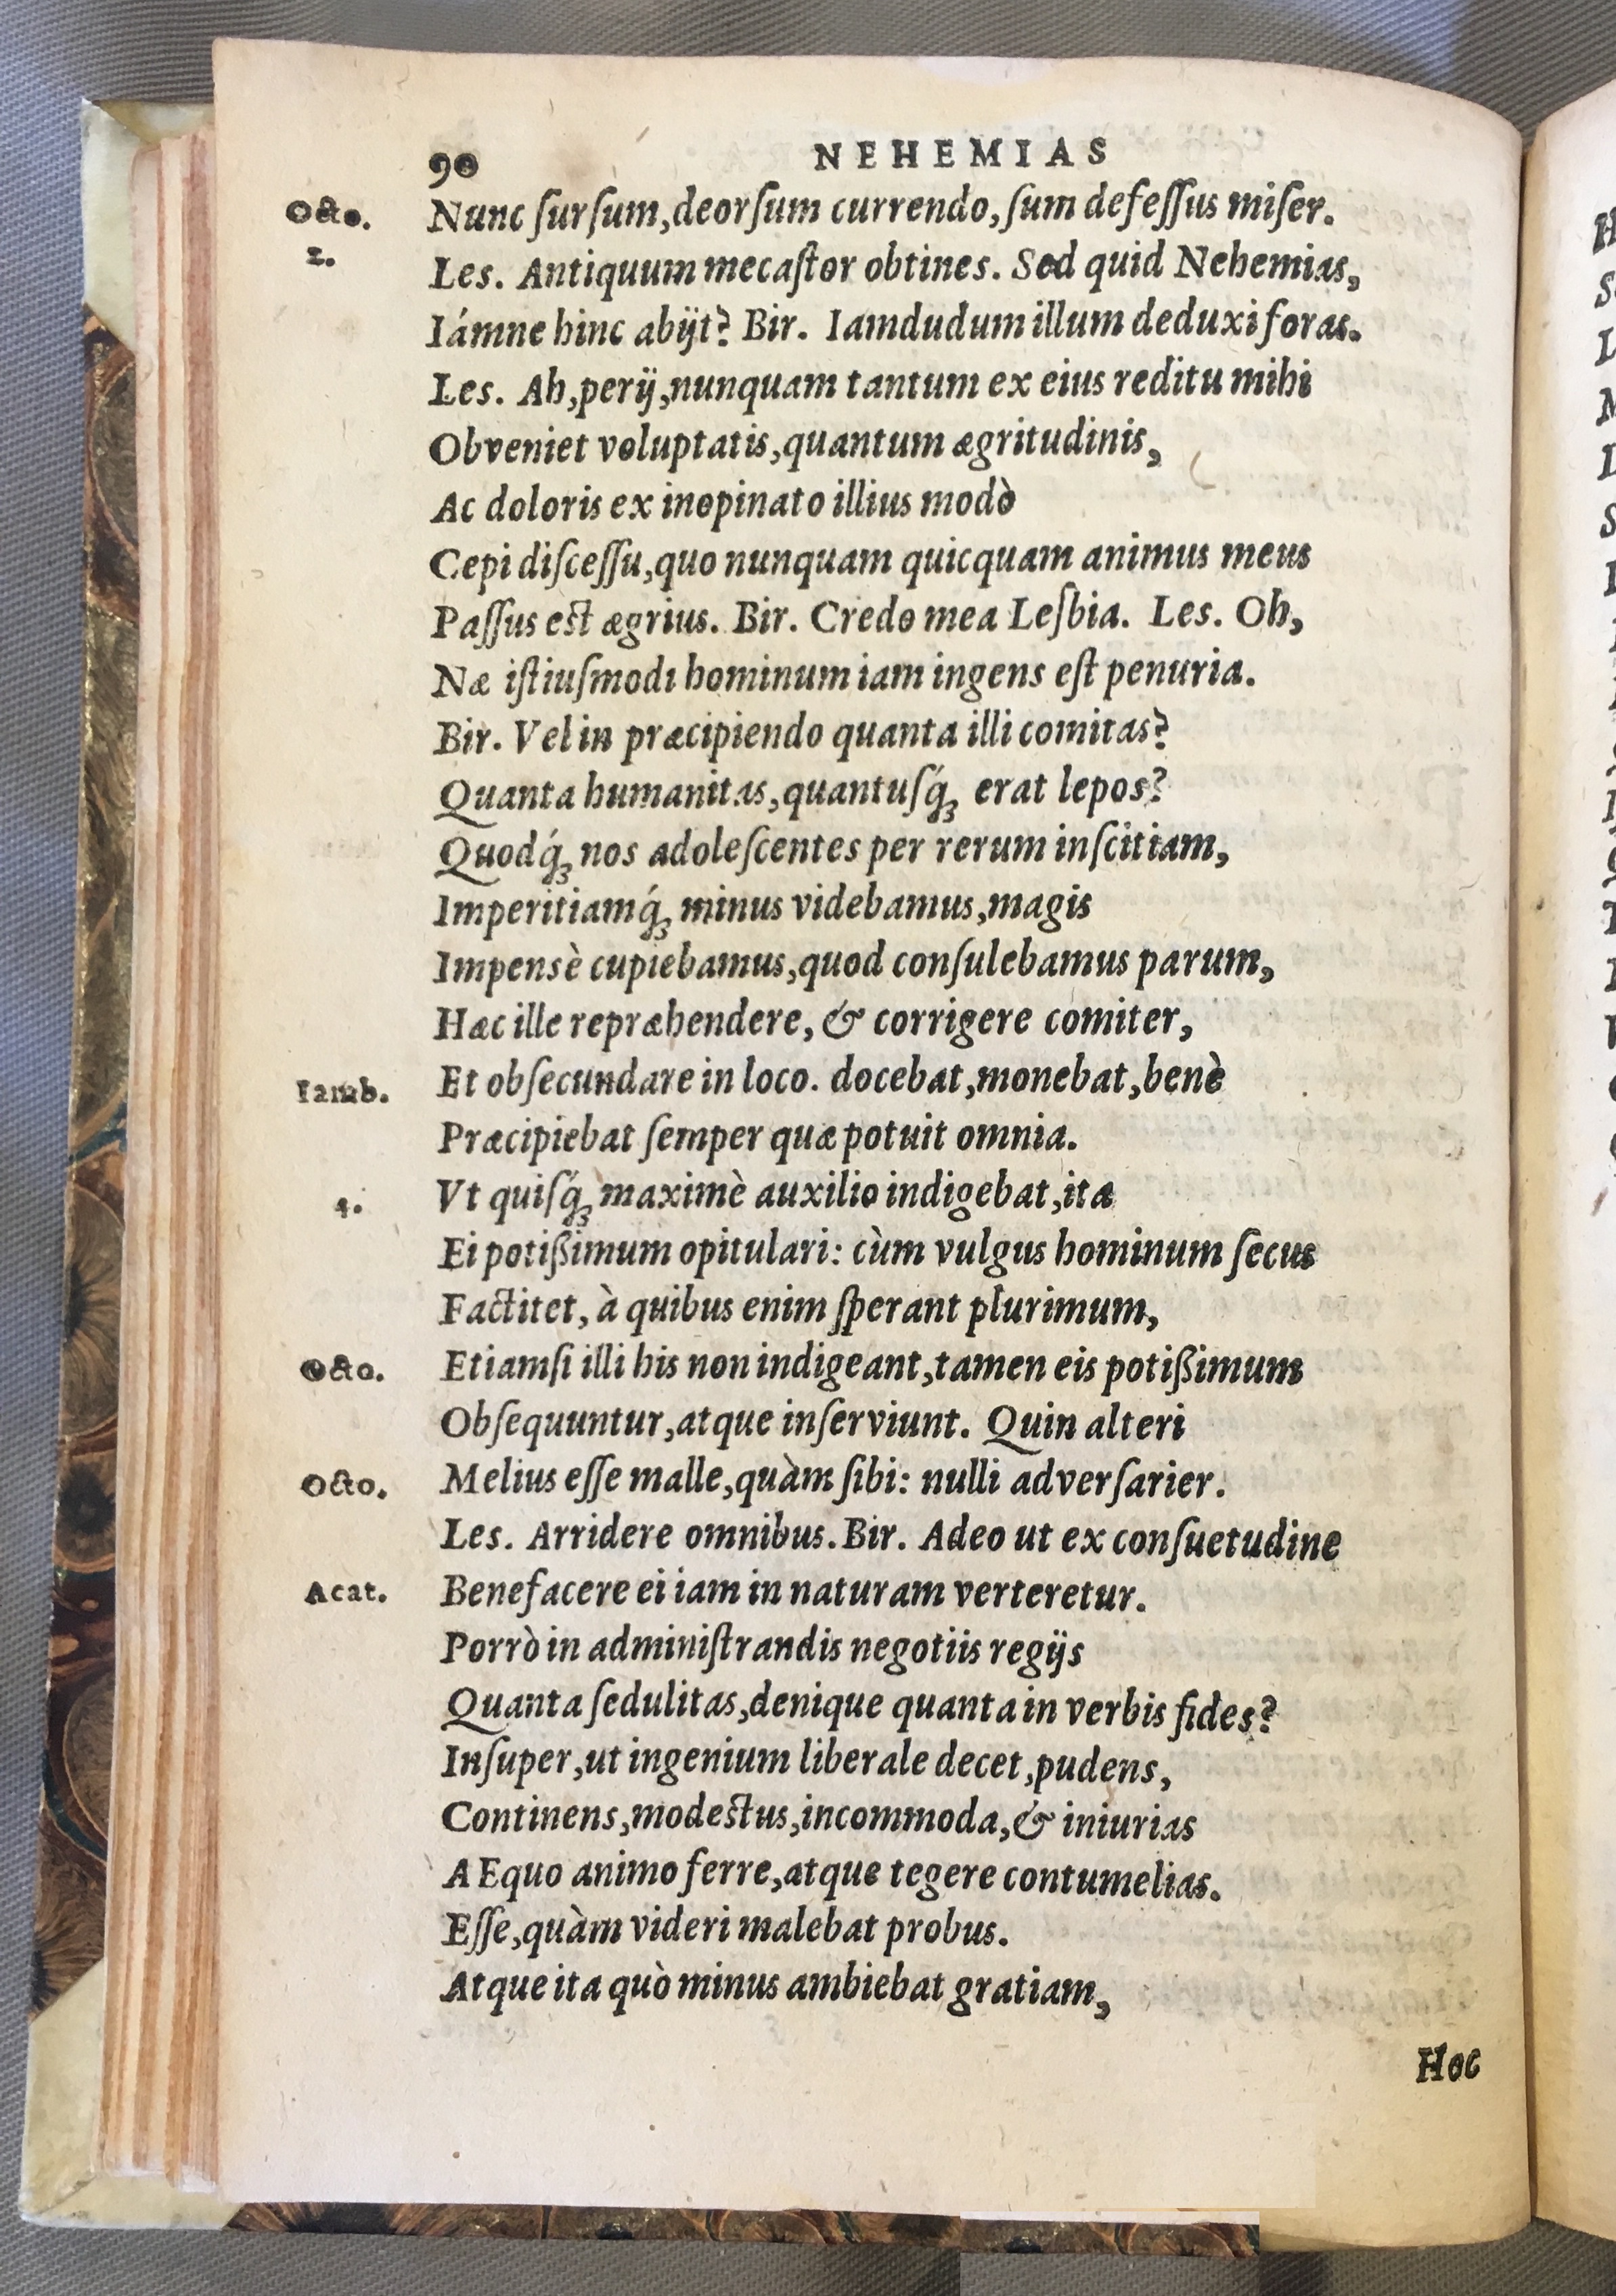 90 NEHEMIAS
Octo. Nunc ſurſum, deorſum currendo, ſum defeſſus miſer.
2. Les. Antiquum mecaſtor obtines. Sed quid Nehemias,
Iámne hinc abijt? Bir. Iamdudum illum deduxi foras.
Les. Ah, perij, nunquam tantum ex eius reditu mihi
Obveniet voluptatis, quantum ægritudinis,
Ac doloris ex inopinato illius modò
Cepi diſceſſu, quo nunquam quicquam animus meus
Paſſus est ægrius. Bir. Credo mea Leſbia. Les. Oh,
Næ iſtiuſmodi hominum iam ingens eſt penuria.
Bir. Vel in præcipiendo quanta illi comitas?
Quanta humanitas, quantuſq́ꝫ erat lepos?
Quodq́ꝫ nos adoleſcentes per rerum inſcitiam,
Imperitiamq́ꝫ minus videbamus, magis
Impensè cupiebamus, quod conſulebamus parum,
Hæc ille repræhendere, & corrigere comiter,
Iamb. Et obſecundare in loco. docebat, monebat, benè
Præcipiebat ſemper quæ potuit omnia.
4. Vt quiſq́ꝫ maximè auxilio indigebat, ita
Ei potißimum opitulari: cùm vulgus hominum ſecus
Factitet, à quibus enim ſperant plurimum,
Octo. Etiamſi illi his non indigeant, tamen eis potißimum
Obſequuntur, atque inſerviunt. Quin alteri
Octo. Melius eſſe malle, quàm ſibi: nulli adverſarier.
Les. Arridere omnibus. Bir. Adeo ut ex conſuetudine
Acat. Benefacere ei iam in naturam verteretur.
Porrò in adminiſtrandis negotiis regijs
Quanta ſedulitas, denique quanta in verbis fides?
Inſuper, ut ingenium liberale decet, pudens,
Continens, modestus, incommoda, & iniurias
AEquo animo ferre, atque tegere contumelias.
Eſſe, quàm videri malebat probus.
Atque ita quò minus ambiebat gratiam,
Hoc